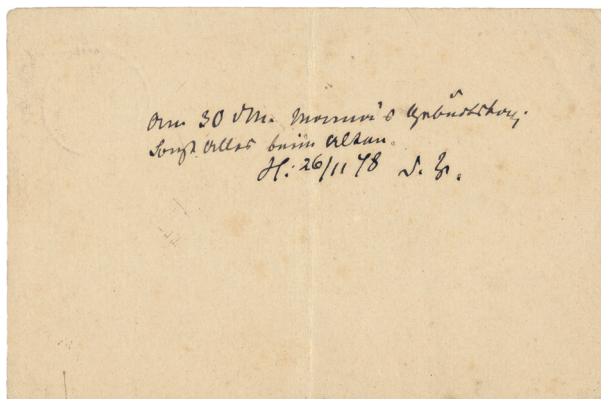 Am 30 d M. Mama's Geburtstag,
sonst Alles beim Alten.
H: 26/11 78